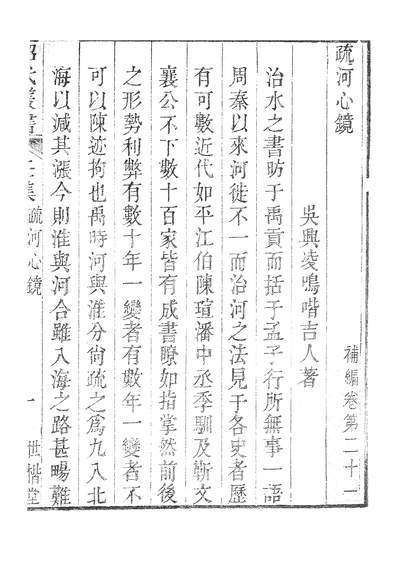 疏河心鏡
補編卷第二十一
吳興凌鳴喈吉人著
治水之書昉于禹貢而括于孟子行所無事一語
周秦以來河徙不一而治河之法見于各史者歷
有可數近代如平江伯陳瑄潘中丞季馴及靳文
襄公不下數十百家皆有成書瞭如指掌然前後
之形勢利弊有數十年一變者有數年一變者不
可以陳迹拘也禹時河與淮分尙疏之爲九入北
海以減其漲今則淮與河合雖入海之路甚暢難
疏河心鏡
一
世楷堂